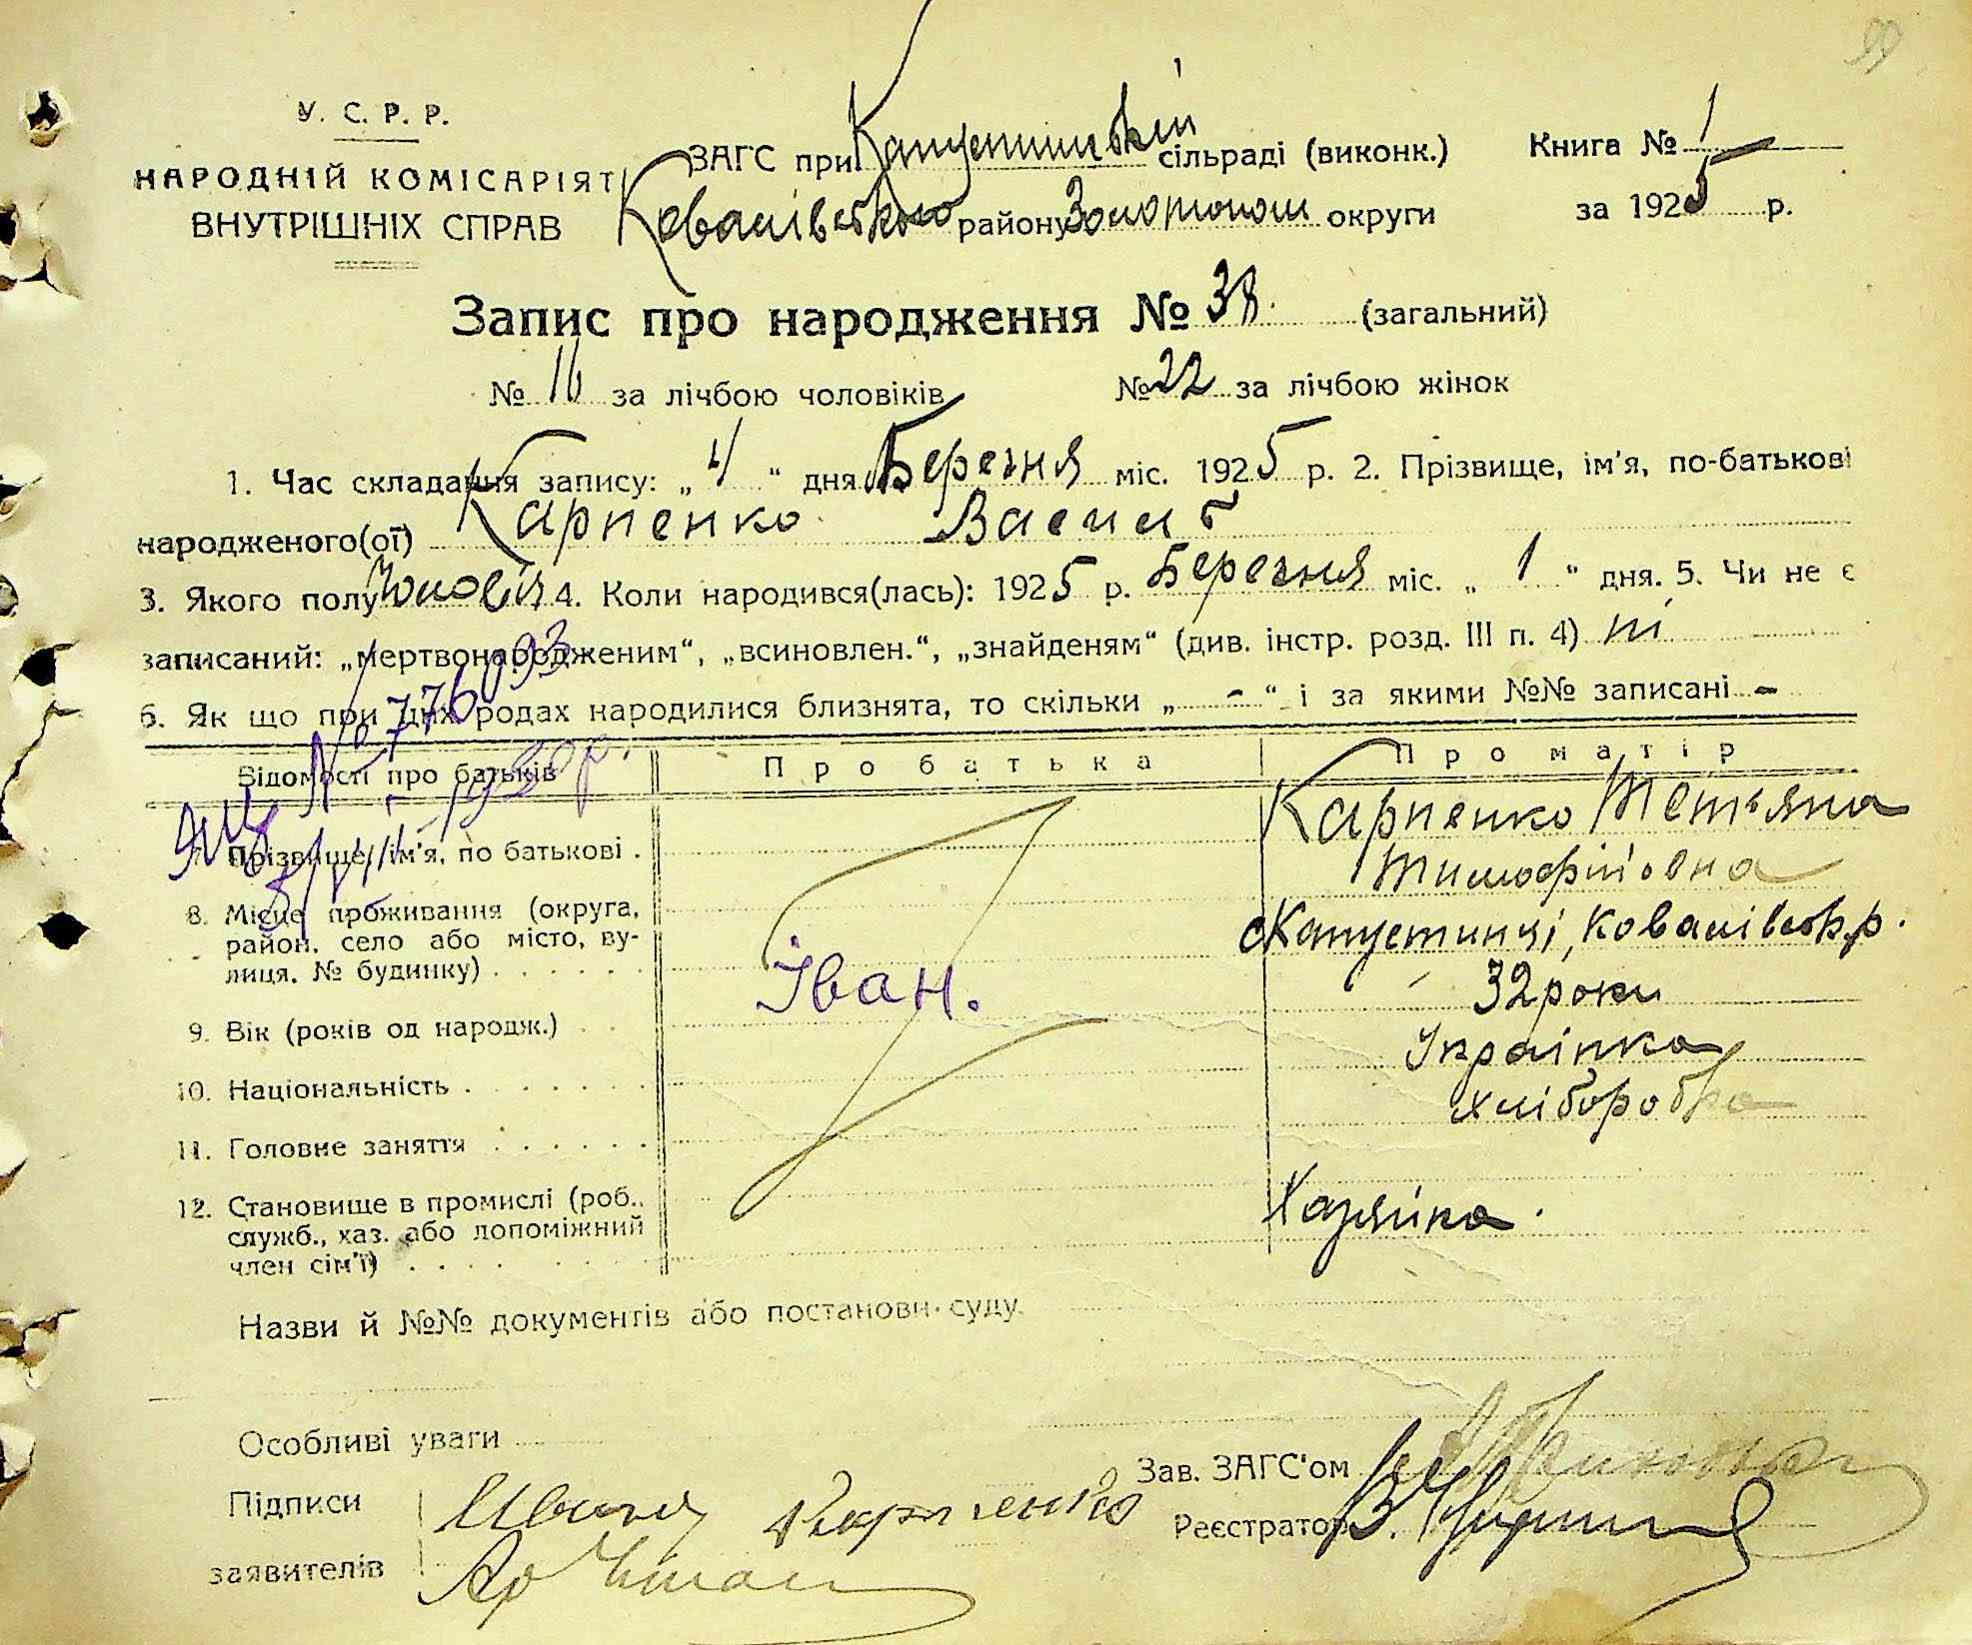 99
У. С. Р. Р.
НАРОДНІЙ КОМІСАРІЯТ
ВНУТРІШНІХ СПРАВ
ЗАГС при Капустинській сільраді (виконк.)
Ковалівського району Золотонош округи
Книга № 1
за 1925 р.
Запис про народження № 38. (загальний)
№ 16 за лічбою чоловіків № 22 за лічбою жінок
1. Час складання запису: „ 4 “ дня Березня міс. 1925 р. 2. Прізвище, ім'я, по-батькові
народженого(ої) Карпенко Василь
3. Якого полу Чоловіч 4. Коли народився(лась): 1925 р. Березня міс. „ 1 “ дня. 5. Чи не є
записаний: „мертвонародженим“, „всиновлен.“, „знайденям“ (див. інстр. розд. III п. 4) ні
6. Як що при цих родах народилися близнята, то скільки „ - “ і за якими №№ записані -
№ 776093
Відомості про батьків Про батька Про матір
7. Прізвище, ім'я, по батькові . Карпенко Тетьяна
Тимофіївна
8. Місце проживання (округа, район, село або місто, ву-лиця, № будинку) . . . . . . с Капустинці, Ковалівськ. р.
Іван.
9. Вік (років од народж.) . . 32 роки
10. Національність . . . . . . . Українка
11. Головне заняття . . . . . . хліборобка
12. Становище в промислі (роб., служб., хаз. або допоміжний член сім'ї) . . . . Хазяйка.
Назви й №№ документів або постанови суду
Особливі уваги
Підписи Ивань Карпенко
заявителів
Зав. ЗАГС'ом
Реєстратор В.